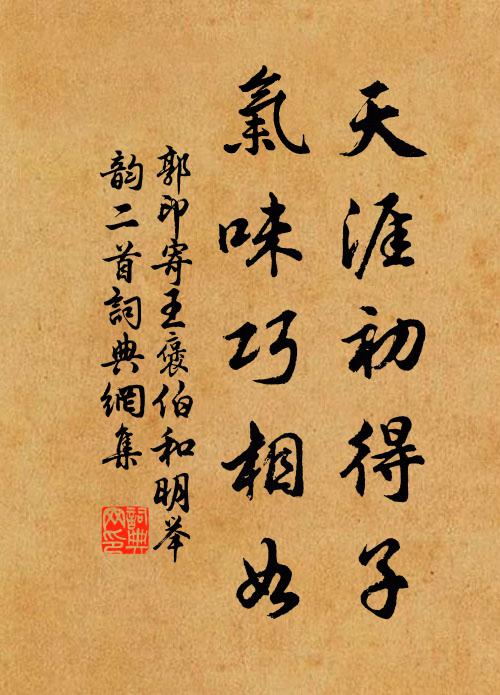 天涯初得子
氣味巧相如
郭印寄王褒伯和明举
韵二首詞典網集
詞典網印